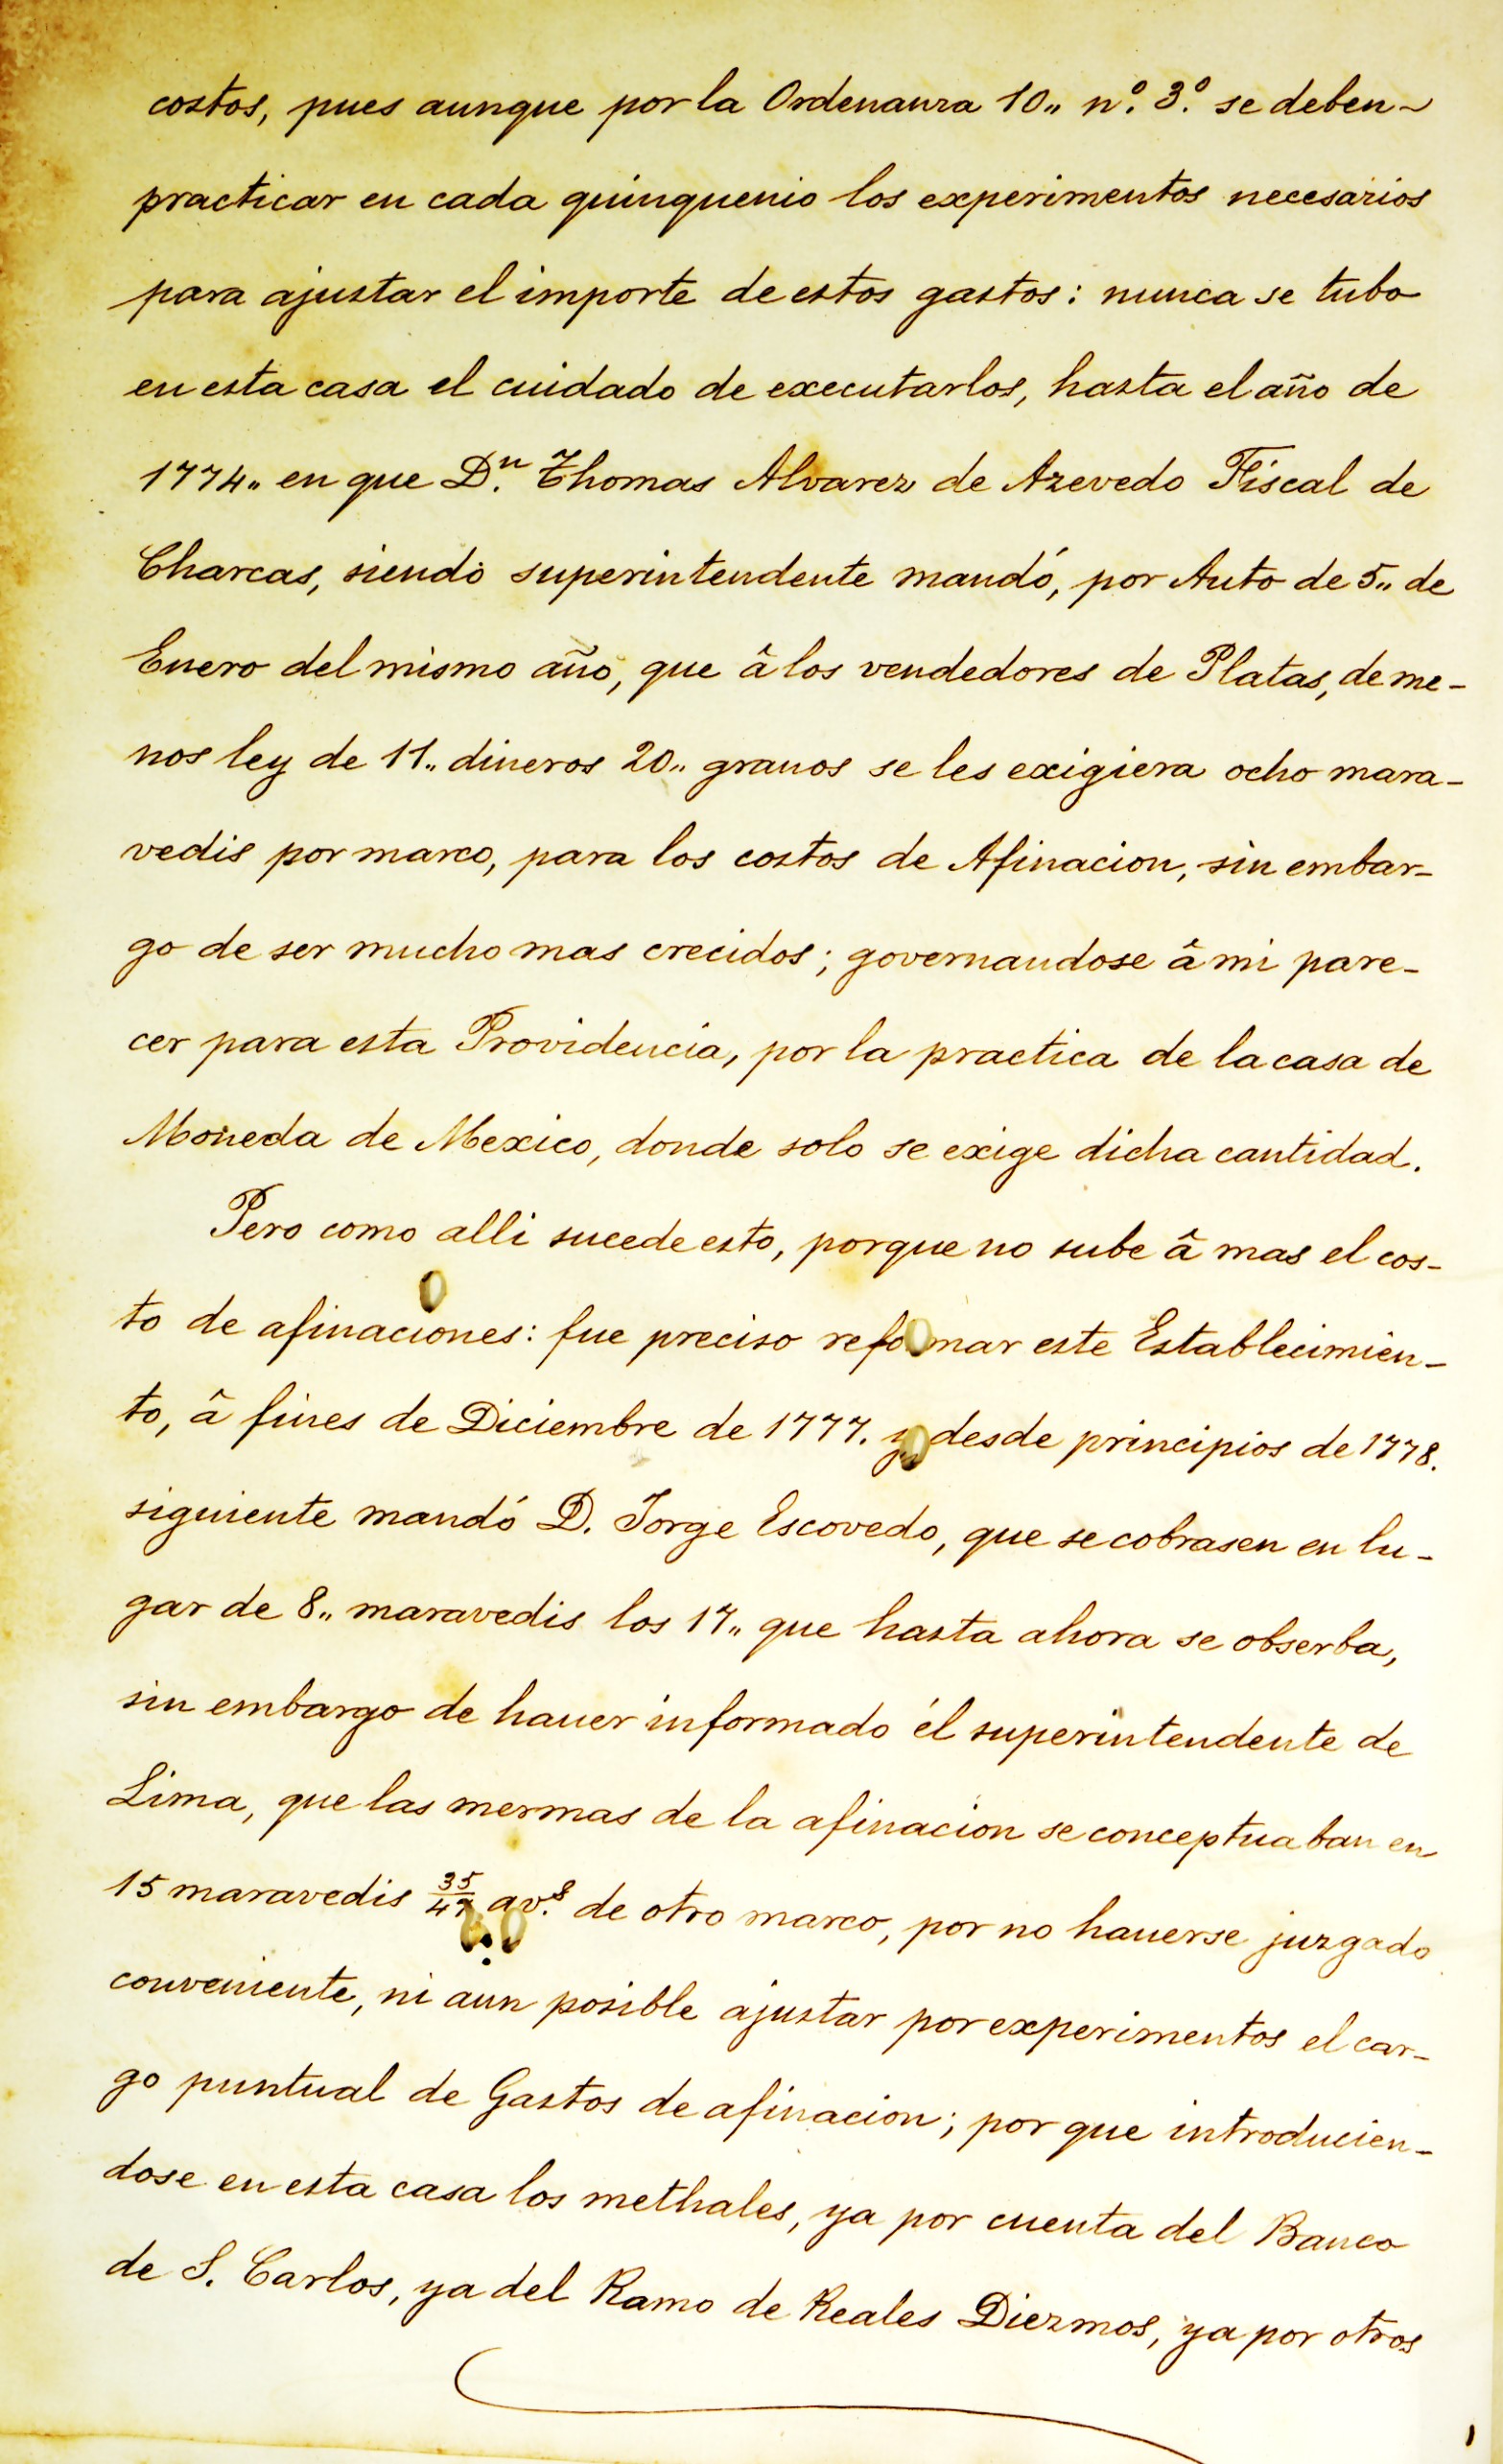 costos, pues aunque por la Ordenanza 10,, nº. 3.º se deben
practicar en cada quinquenio los experimentos necesarios
para ajustar el importe de estos gastos: nunca se tubo
en esta casa el cuidado de executarlos, hasta el año de
1774,, en que D.n Thomas Alvarez de Azevedo Fiscal de
Charcas, siendo superintendente mandó, por Auto de 5,, de
Enero del mismo año, que â los vendedores de Platas, de me-
nos ley de 11,, dineros 20,, granos se les exigiera ocho mara-
vedis por marco, para los costos de Afinacion, sin embar-
go de ser mucho mas crecidos; governandose â mi pare-
cer para esta Providencia, por la practica de la casa de
Moneda de Mexico, donde solo se exige dicha cantidad.
Pero como alli sucede esto, porque no sube â mas el cos-
to de afinaciones: fue preciso reformar este Establecimien-
to, â fines de Diciembre de 1777. y desde principios de 1778.
siguiente mandó D. Jorge Escovedo, que se cobrasen en lu-
gar de 8,, maravedis los 17,, que hasta ahora se obserba,
sin embargo de hauer informado él superintendente de
Lima, que las mermas de la afinacion se conceptuaban en
15 maravedis 35/47 av.s de otro marco, por no hauerse juzgado
conveniente, ni aun posible ajustar por experimentos el car-
go puntual de Gastos de afinacion; por que introducien-
dose en esta casa los methales, ya por cuenta del Banco
de S. Carlos, ya del Ramo de Reales Diezmos, ya por otros